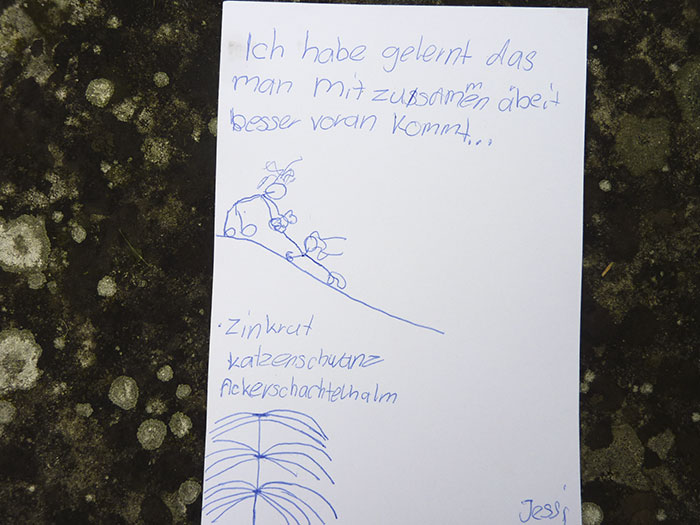 Ich habe gelernt das
man mit zusammen äbeit
besser voran kommt...
Zinkrut
Katzenschwanz
Ackerschachtelhalm
Jessi